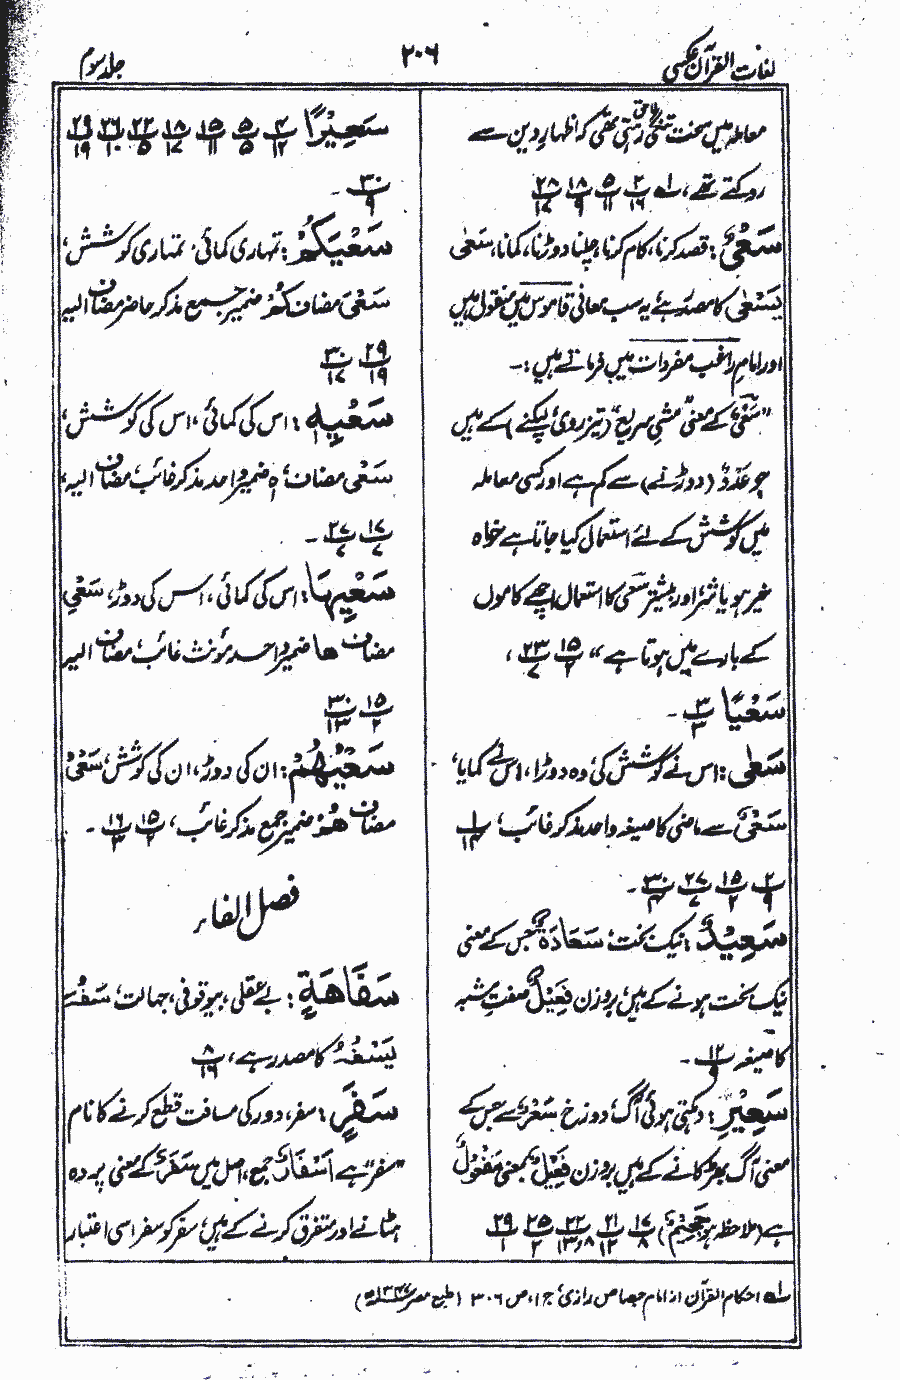 لغات القرآن عکسی
۲۰۶
جلد سوم
معاملہ میں سخت تنگی لاحق رہتی تھی کہ اظہارِ دین سے
روکتے تھے، لہ
سَعْیٌ: قصد کرنا، کام کرنا، چلنا دوڑنا، کمانا، سَعٰی
یَسْعٰی کا مصدر ہے یہ سب معانی قاموس میں منقول ہیں
اور امام راغب مفردات میں فرماتے ہیں:۔
"سَعْیٌ کے معنی مشی سریع (تیز روی، لپکنے) کے ہیں
جو عَدْوٌ (دوڑنے) سے کم ہے اور کسی معاملہ
میں کوشش کے لئے استعمال کیا جاتا ہے خواہ
خیر ہو یا شر، اور بیشتر سعی کا استعمال اچھے کاموں
کے بارے میں ہوتا ہے" ۱۵/۲ ۲۳/۷،
سَعْیًا ۳/۳۔
سَعٰی: اس نے کوشش کی، وہ دوڑا، اس نے کمایا،
سَعْیٌ سے ماضی کا صیغہ واحد مذکر غائب، ۱/۱۴
۲/۹ ۱۵/۲ ۲۷/۷ ۳۰/۴۔
سَعِیْدٌ: نیک بخت، سَعَادَۃٌ جس کے معنی
نیک بخت ہونے کے ہیں، بروزن فَعِیْلٌ صفت مشبہ
کا صیغہ ۱۲/۹۔
سَعِیْرِ: دہکتی ہوئی آگ، دوزخ سَعْرٌ سے جس کے
معنی آگ بھڑکانے کے ہیں بروزن فَعِیْلٌ بمعنی مَفْعُوْلٌ
ہے (ملاحظہ ہو جَحِیْمٌ) ۱۷/۸ ۲۱/۱۲ ۲۲/۸،۱۳ ۲۵/۲ ۲۹/۱
سَعِیْرًا ۴/۱۲ ۵/۵ ۱۵/۱۱ ۱۸/۱۷ ۲۲/۵ ۲۶/۱۰ ۲۹/۱۹
۳۰/۹۔
سَعْیَکُمْ: تمہاری کمائی، تمہاری کوشش،
سَعْیَ مضاف کُمْ ضمیر جمع مذکر حاضر مضاف الیہ
۲۹/۱۹ ۳۰/۱۷
سَعْیِہٖ: اس کی کمائی، اس کی کوشش،
سَعْی مضاف، ہٖ ضمیر واحد مذکر غائب، مضاف الیہ،
۱۷/۷ ۲۷/۷۔
سَعْیِہَا: اس کی کمائی، اس کی دوڑ، سَعْیِ
مضاف ھا ضمیر واحد مؤنث غائب، مضاف الیہ
۱۵/۲ ۳۰/۱۳
سَعْیُہُمْ: ان کی دوڑ، ان کی کوشش، سَعْیُ
مضاف ھُمْ ضمیر جمع مذکر غائب، ۱۵/۲ ۱۶/۳۔
فصل الفاء
سَفَاھَۃٍ: بے عقلی، بیوقوفی، جہالت، سَفُہَ
یَسْفُہُ کا مصدر ہے، ۸/۱۶
سَفَرٍ: سفر، دور کی مسافت قطع کرنے کا نام
"سفر" ہے اَسْفَارٌ جمع، اصل میں سَفَرٌ کے معنی پردہ
ہٹانے اور متفرق کرنے کے ہیں، سفر کو سفر اسی اعتبار
لہ احکام القرآن از امام جصاص رازی، ج ۱، ص ۳۰۶ (طبع مصر ۱۳۴۷ھ)